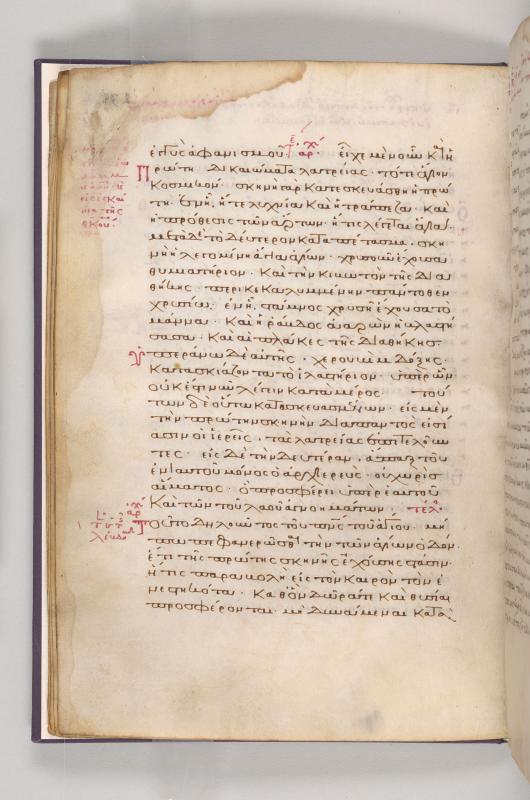 ἐγγὺς ἀφανισμοῦ· ἀρχ εἶχε μὲν οὖν καὶ ἡ
πρώτη δικαιώματα λατρείας· τό τε ἅγιον
κοσμικόν· σκηνὴ γὰρ κατεσκευάσθη ἡ πρώ
τη· ἐν ᾗ, ἥ τε λυχνία καὶ ἡ τράπεζα· καὶ
ἡ πρόθεσις τῶν ἄρτων· ἥτις λέγεται ἅγια·
μετὰ δὲ τὸ δεύτερον καταπέτασμα, σκη
νὴ ἡ λεγομένη ἅγια ἁγίων· χρυσοῦν ἔχουσα
θυμιατήριον· καὶ τὴν κιβωτὸν τῆς δια
θήκης περικεκαλυμμένην πάντοθεν
χρυσίω· ἐν ᾗ, στάμνος χρυσῆ ἔχουσα τὸ
μάννα· καὶ ἡ ῥάβδος ἀαρὼν ἡ βλαστή
σασα· καὶ αἱ πλάκες τῆς διαθήκης·
ὑπεράνω δὲ αὐτῆς· χερουβὶμ δόξης·
κατασκιάζοντα τὸ ἱλαστήριον· ὑπὲρ ὧν
οὐκ ἔστι νῦν λέγειν κατὰ μέρος· τού
των δὲ οὕτω κατεσκευασμένων· εἰς μὲν
τὴν πρώτην σκηνὴν διαπαντὸς εἰσί
ασιν οἱ ἱερεῖς, τὰς λατρείας ἐπιτελοῦν
τες· εἰς δὲ τὴν δευτέραν, ἅπαξ τοῦ
ἐνιαυτοῦ μόνος ὁ ἀρχιερεύς· οὐ χωρὶς
αἵματος· ὃ προσφέρει ὑπὲρ ἑαυτοῦ
καὶ τῶν τοῦ λαοῦ ἀγνοημάτων· τέλ
τοῦτο δηλοῦντος τοῦ πνς τοῦ ἁγίου· μή
πω πεφανερῶσθαι τὴν τῶν ἁγίων ὁδόν·
ἔτι τῆς πρώτης σκηνῆς ἐχούσης στάσιν·
ἥτις παραβολὴ εἰς τὸν καιρὸν τὸν ἐ
νεστηκότα· καθ' ὃν δῶρά τε καὶ θυσίαι
προσφέρονται μὴ δυνάμεναι κατὰ